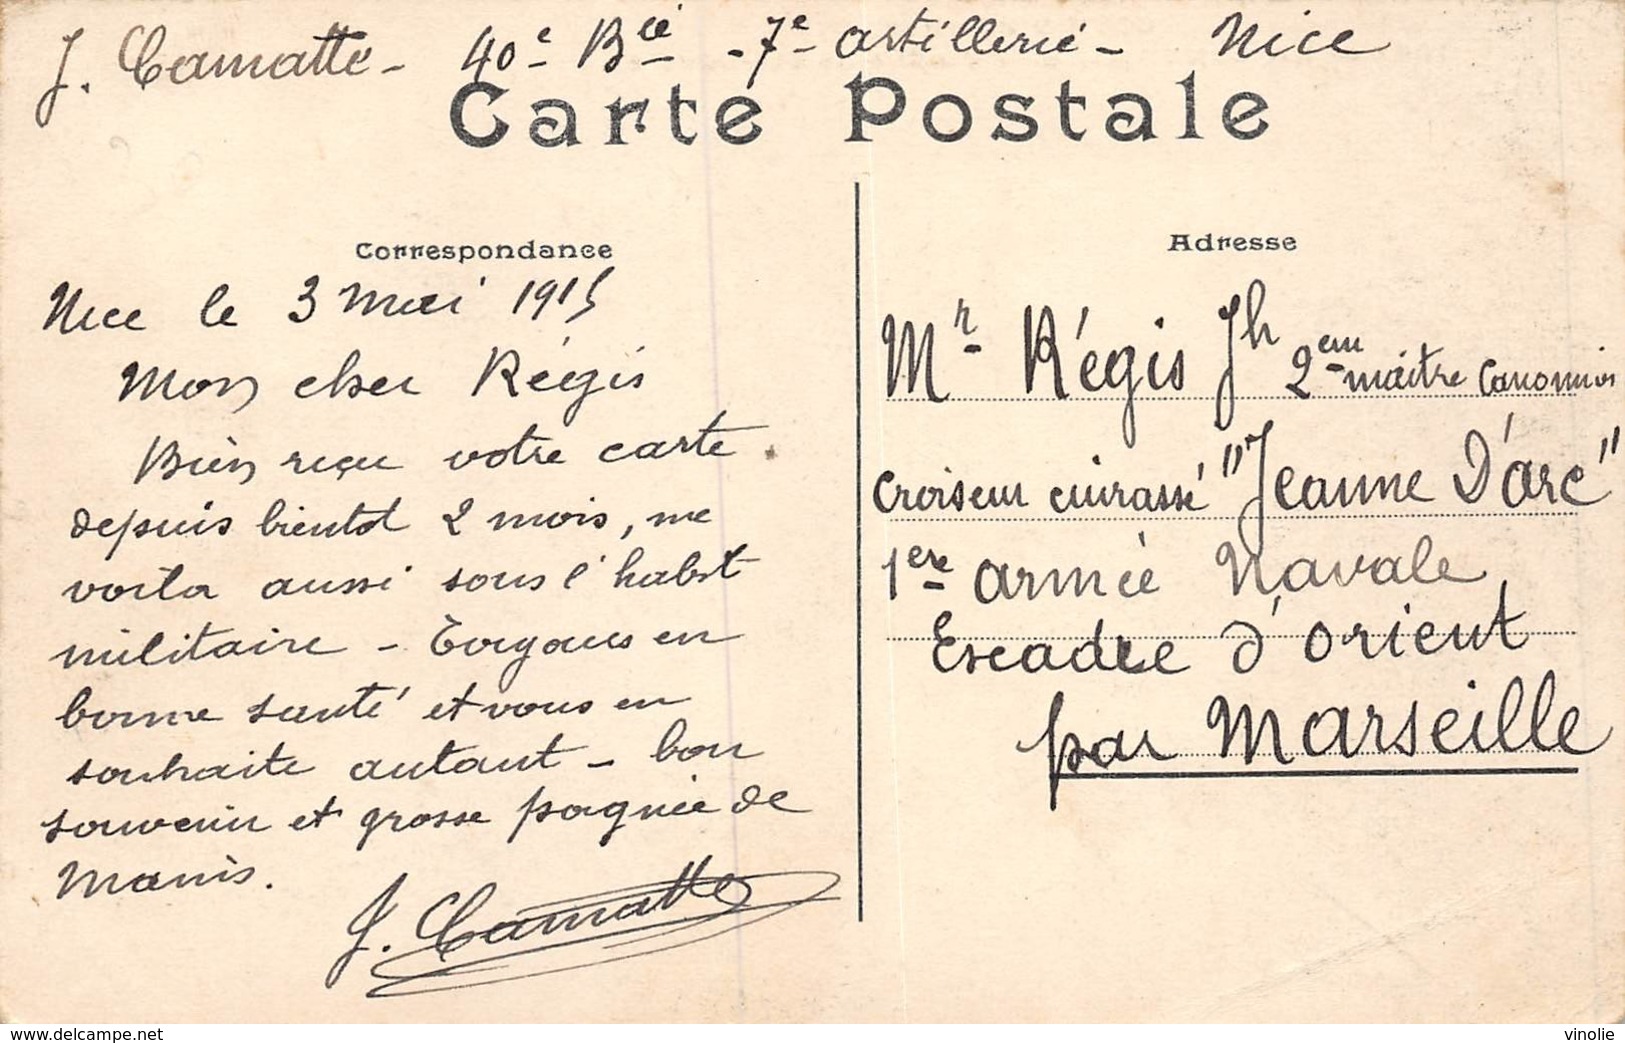 J. Camatte - 40e Bie - 7e artillerie - Nice
Carte Postale
Correspondance
Nice le 3 Mai 1915
Mon cher Régis
Bien reçu votre carte
depuis bientot 2 mois, me
voila aussi sous l'habit
militaire - Toujours en
bonne santé et vous en
souhaite autant - bon
souvenir et grosse poignée de
Mains.
J. Camatte
Adresse
Mr Régis Jh 2em maitre Canonnier
Croiseur cuirassé "Jeanne D'arc"
1ere armée Navale
Escadre d'orient
par Marseille
www.delcampe.net
vinolie